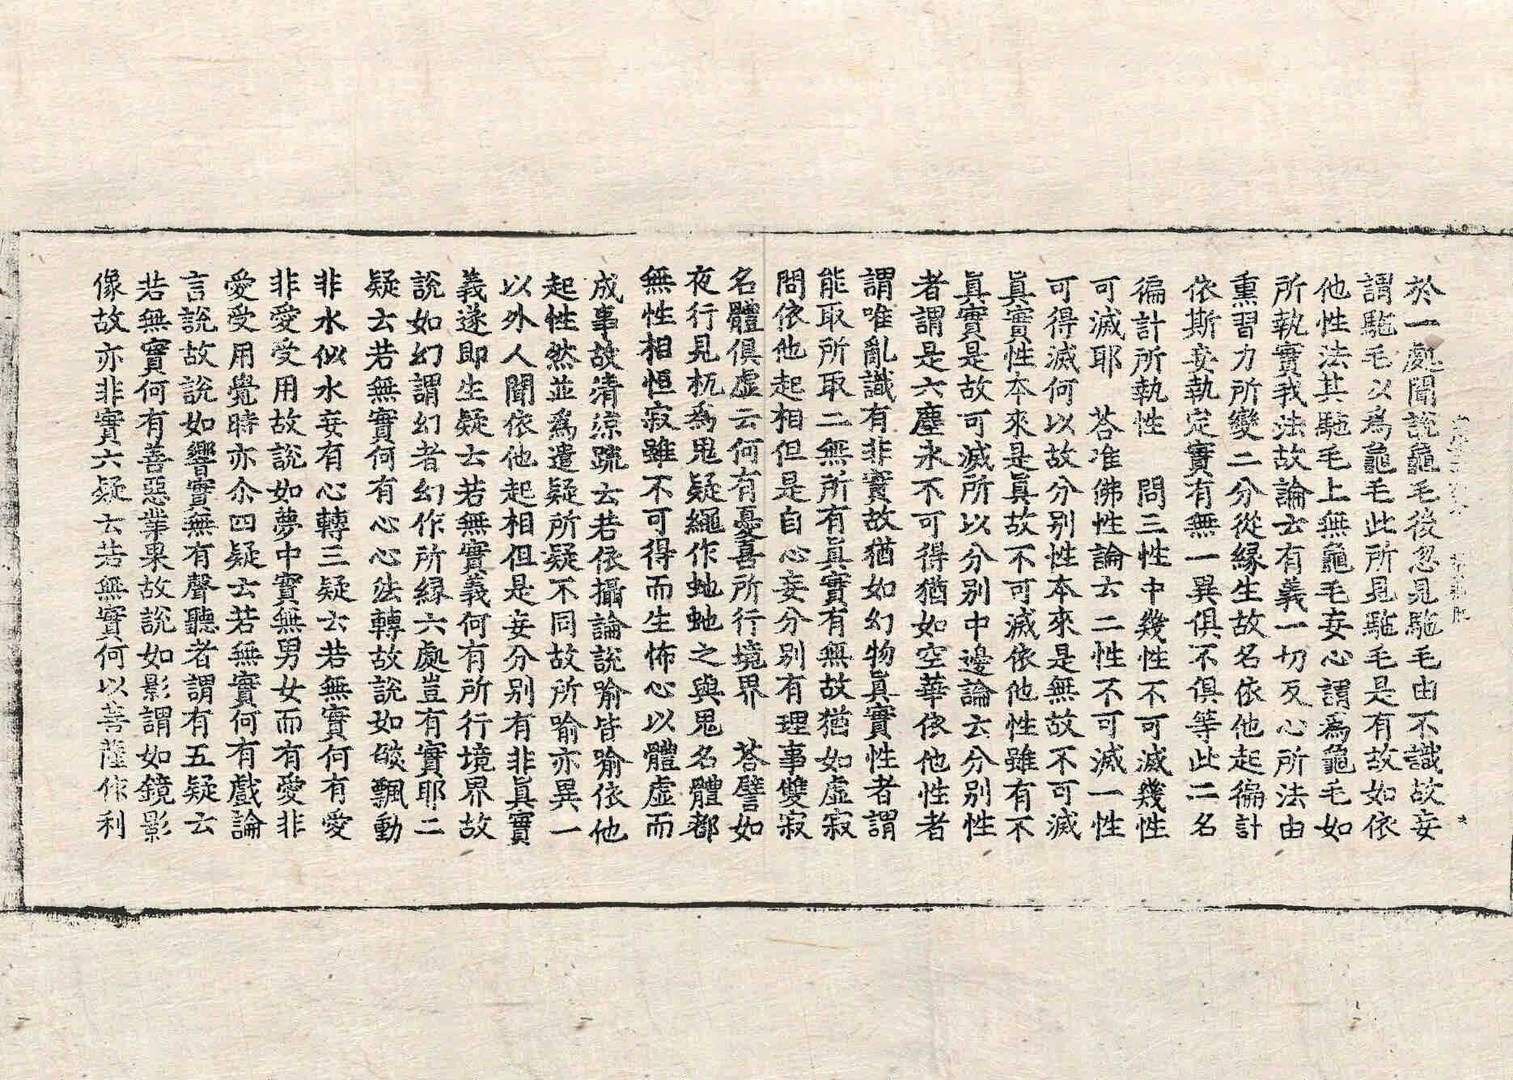 於一處聞說龜毛後忽見駞毛由不識故妄
謂駞毛以爲龜毛此所見駞毛是有故如依
他性法其駞毛上無龜毛妄心謂爲龜毛如
所執實我法故論云有義一切及心所法由
熏習力所變二分從緣生故名依他起徧計
依斯妄執定實有無一異俱不俱等此二名
徧計所執性　問三性中幾性不可滅幾性
可滅耶　荅准佛性論云二性不可滅一性
可得滅何以故分别性本來是無故不可滅
眞實性本來是眞故不可滅依他性雖有不
眞實是故可滅所以分别中邊論云分别性
者謂是六塵永不可得猶如空華依他性者
謂唯亂識有非實故猶如幻物眞實性者謂
能取所取二無所有眞實有無故猶如虛寂
問依他起相但是自心妄分别有理事雙寂
名體俱虛云何有憂喜所行境界　荅譬如
夜行見杌爲鬼疑繩作虵虵之與鬼名體都
無性相恒寂雖不可得而生怖心以體虛而
成事故清涼䟽云若依攝論說喻皆喻依他
起性然並爲遣疑所疑不同故所喻亦異一
以外人聞依他起相但是妄分别有非眞實
義遂即生疑云若無實義何有所行境界故
說如幻謂幻者幻作所緣六處豈有實耶二
疑云若無實何有心心法轉故說如燄飄動
非水似水妄有心轉三疑云若無實何有愛
非愛受用故說如夢中實無男女而有愛非
愛受用覺時亦尒四疑云若無實何有戲論
言說故說如響實無有聲聽者謂有五疑云
若無實何有善惡業果故說如影謂如鏡影
像故亦非實六疑云若無實何以菩薩作利